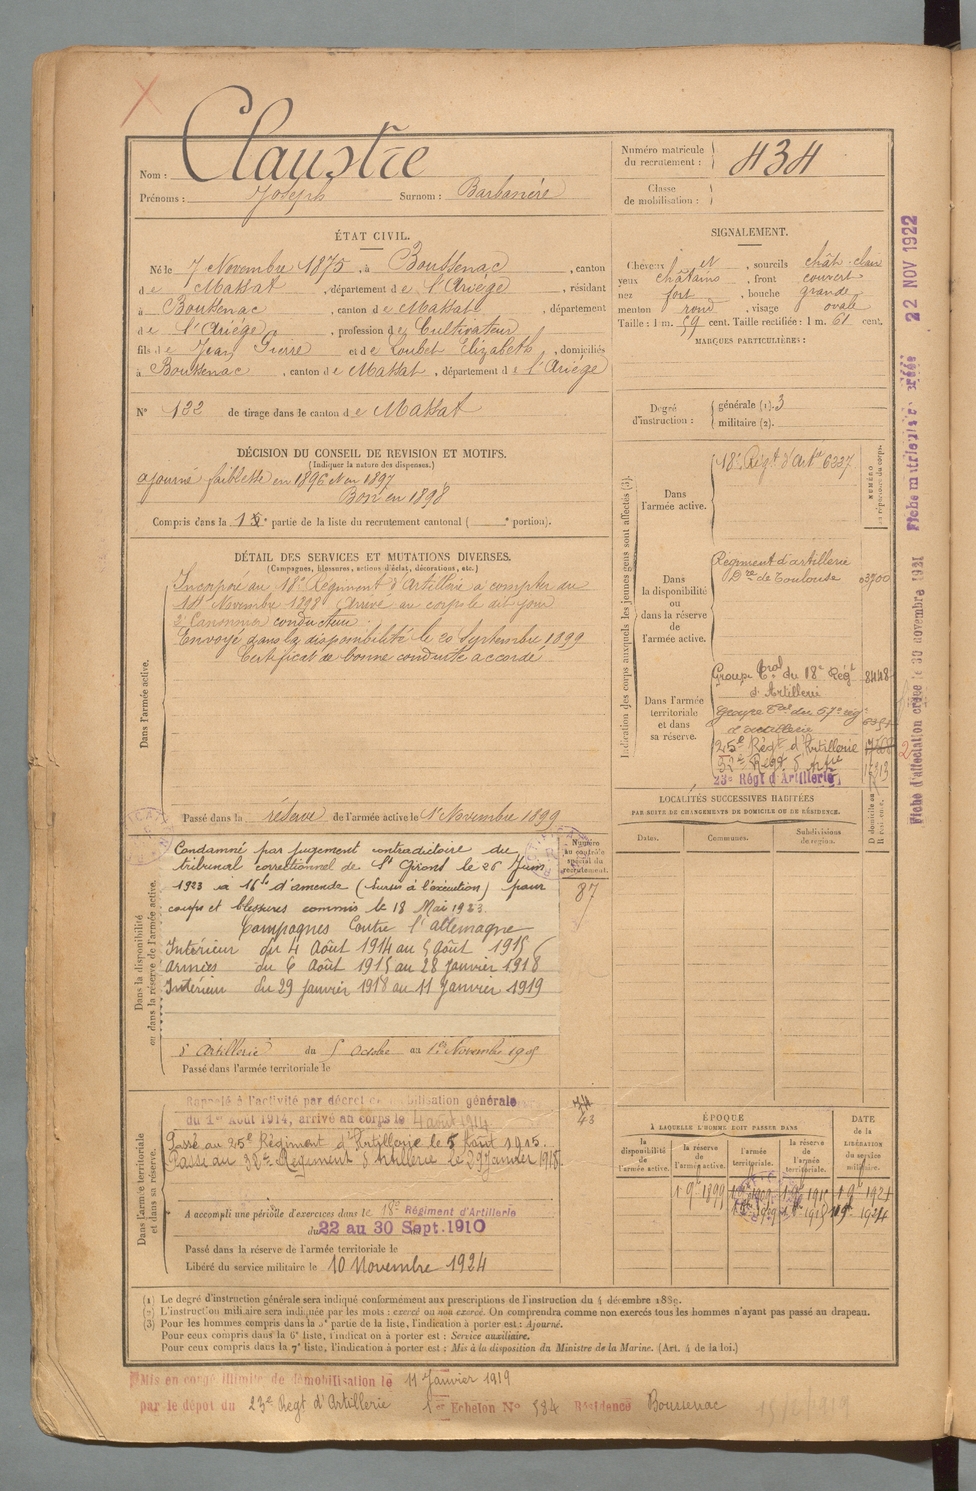 Nom : Claustre
Prénoms : Joseph Surnom : Barbanère
Numéro matricule du recrutement : 434
Classe de mobilisation :
ÉTAT CIVIL.
Né le 7 Novembre 1875, à Boussenac, canton
de Massat, département de l'Ariège, résidant
à Boussenac, canton de Massat, département
de l'Ariège, profession de Cultivateur
fils de Jean Pierre et de Loubet Elizabeth, domiciliés
à Boussenac, canton de Massat, département de l'Ariège
N° 122 de tirage dans le canton de Massat
DÉCISION DU CONSEIL DE REVISION ET MOTIFS.
(Indiquer la nature des dispenses.)
ajourné faiblesse en 1896 et en 1897
Bon en 1898
Compris dans la 1e partie de la liste du recrutement cantonal ( e portion).
DÉTAIL DES SERVICES ET MUTATIONS DIVERSES.
(Campagnes, blessures, actions d'éclat, décorations, etc.)
Dans l'armée active.
Incorporé au 18e Régiment d'Artillerie à compter du
14 Novembre 1898 Arrivé au corps le dit jour
2e Canonnier conducteur
Envoyé dans la disponibilité le 20 Septembre 1899
Certificat de bonne conduite accordé
Passé dans la réserve de l'armée active le 1er Novembre 1899
Dans la disponibilité ou dans la réserve de l'armée active.
Condamné par jugement contradictoire de
tribunal correctionnel de St Girons le 26 Juin
1923 à 16f d'amende (Sursis à l'exécution) pour
coups et blessures commis le 18 Mai 1923
Campagnes Contre l'allemagne
Intérieur du 4 Août 1914 au 5 Août 1915
Armées du 6 Août 1915 au 28 Janvier 1918
Intérieur du 29 Janvier 1918 au 11 Janvier 1919
d'Artillerie du 5 Octobre au 1er Novembre 190
Passé dans l'armée territoriale le
Numéro au contrôle spécial du recrutement.
87
Dans l'armée territoriale et dans sa réserve.
Rappelé à l'activité par décret de mobilisation générale
du 1er Août 1914, arrivé au corps le 4 août 1914
43
Passé au 25e Régiment d'Artillerie le 5 Août 1915.
Passé au 32e Régiment d'Artillerie le 29 Janvier 1918
A accompli une période d'exercices dans le 18e Régiment d'Artillerie
du 22 au 30 Sept. 1910
Passé dans la réserve de l'armée territoriale le
Libéré du service militaire le 10 Novembre 1924
SIGNALEMENT.
Cheveux et , sourcils chât. clair
yeux châtains , front couvert
nez fort , bouche grande
menton rond , visage ovale
Taille : 1 m. 59 cent. Taille rectifiée : 1 m. 61 cent.
MARQUES PARTICULIÈRES :
Degré d'instruction : générale (1). 3
militaire (2).
Indication des corps auxquels les jeunes gens sont affectés (3).
NUMÉRO au répertoire du corps.
Dans l'armée active.
18e Régt d'Arte 6337
Dans la disponibilité ou dans la réserve de l'armée active.
Régiment d'artillerie
Don de Toulouse 03700
Dans l'armée territoriale et dans sa réserve.
Groupe Tral du 18e Régt 8448
d'Artillerie
Groupe Tal du 57e rég
d'artillerie
25e Régt d'Artillerie
32e Régt d'Artie 1313
23e Régt d'Artillerie
LOCALITÉS SUCCESSIVES HABITÉES
PAR SUITE DE CHANGEMENTS DE DOMICILE OU DE RÉSIDENCE.
Dates. Communes. Subdivisions de région. D domicile ou R résidence.
ÉPOQUE
À LAQUELLE L'HOMME DOIT PASSER DANS
DATE de la LIBÉRATION du service militaire.
la disponibilité de l'armée active. la réserve de l'armée active. l'armée territoriale. la réserve de l'armée territoriale.
1 9bre 1899 1 9bre 1909 1 9bre 1915 1 9bre 1921
(1) Le degré d'instruction générale sera indiqué conformément aux prescriptions de l'instruction du 4 décembre 1889.
(2) L'instruction militaire sera indiquée par les mots : exercé ou non exercé. On comprendra comme non exercés tous les hommes n'ayant pas passé au drapeau.
(3) Pour les hommes compris dans la 5e partie de la liste, l'indication à porter est : Ajourné.
Pour ceux compris dans la 6e liste, l'indication à porter est : Service auxiliaire.
Pour ceux compris dans la 7e liste, l'indication à porter est : Mis à la disposition du Ministre de la Marine. (Art. 4 de la loi.)
Mis en congé illimité de démobilisation le 11 Janvier 1919
par le dépôt du 23e Régt d'Artillerie 1er Echelon N° 584 Résidence Boussenac
Fiche d'affectation créée le 30 novembre 1921 Fiche matricule créée 22 NOV 1922